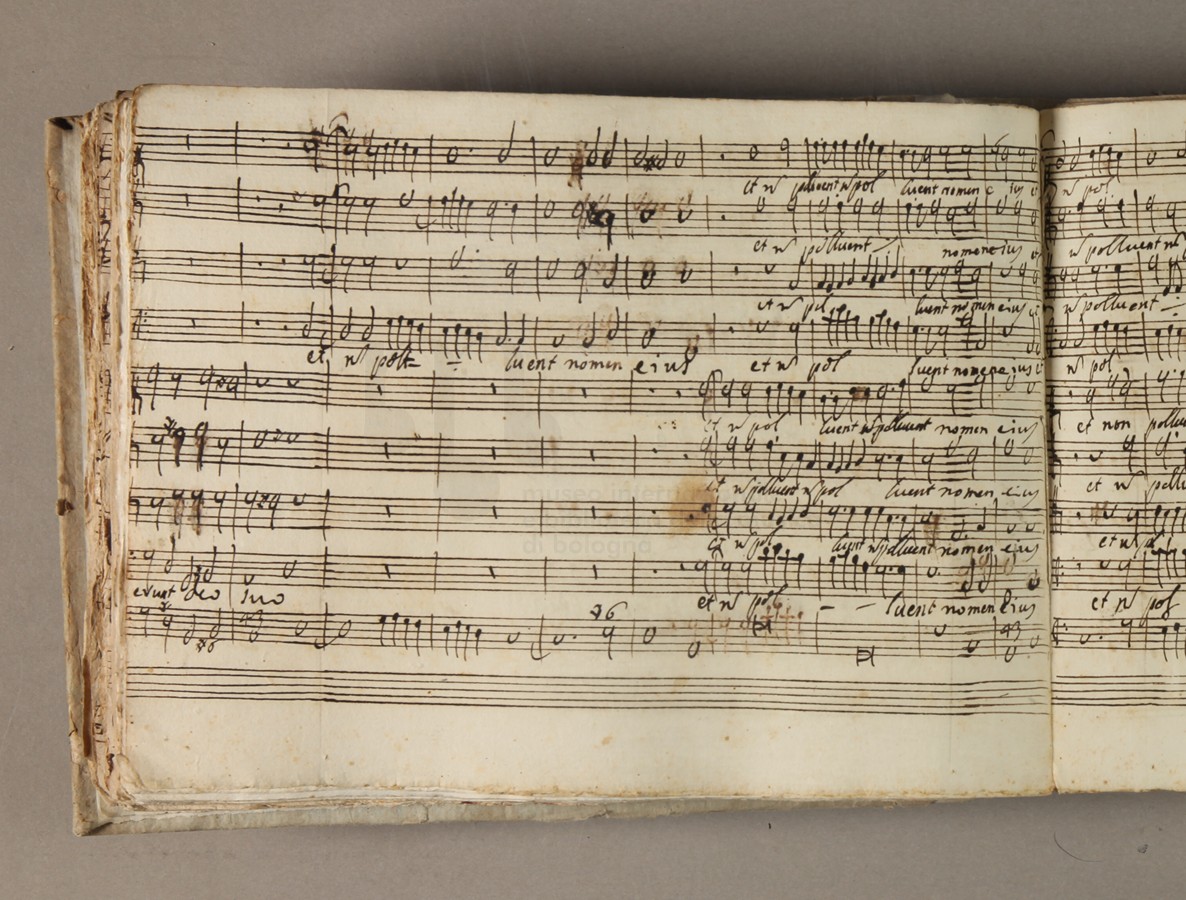 et n polluent n pol luent nomen e ius n pol
et n polluent nomen eius n polluent n
et n pol luent nomen eius et n polluent
et n polt luent nomen eius et n pol luent nomen eius n pol
et n pol luent n polluent nomen eius et non pollu
et n polluent n pol luent nomen eius et n pollu
et n pol luent n polluent nomen eius et n pol
erunt deo suo et n pol luent nomen Eius et n pol
museo intern
di bologna